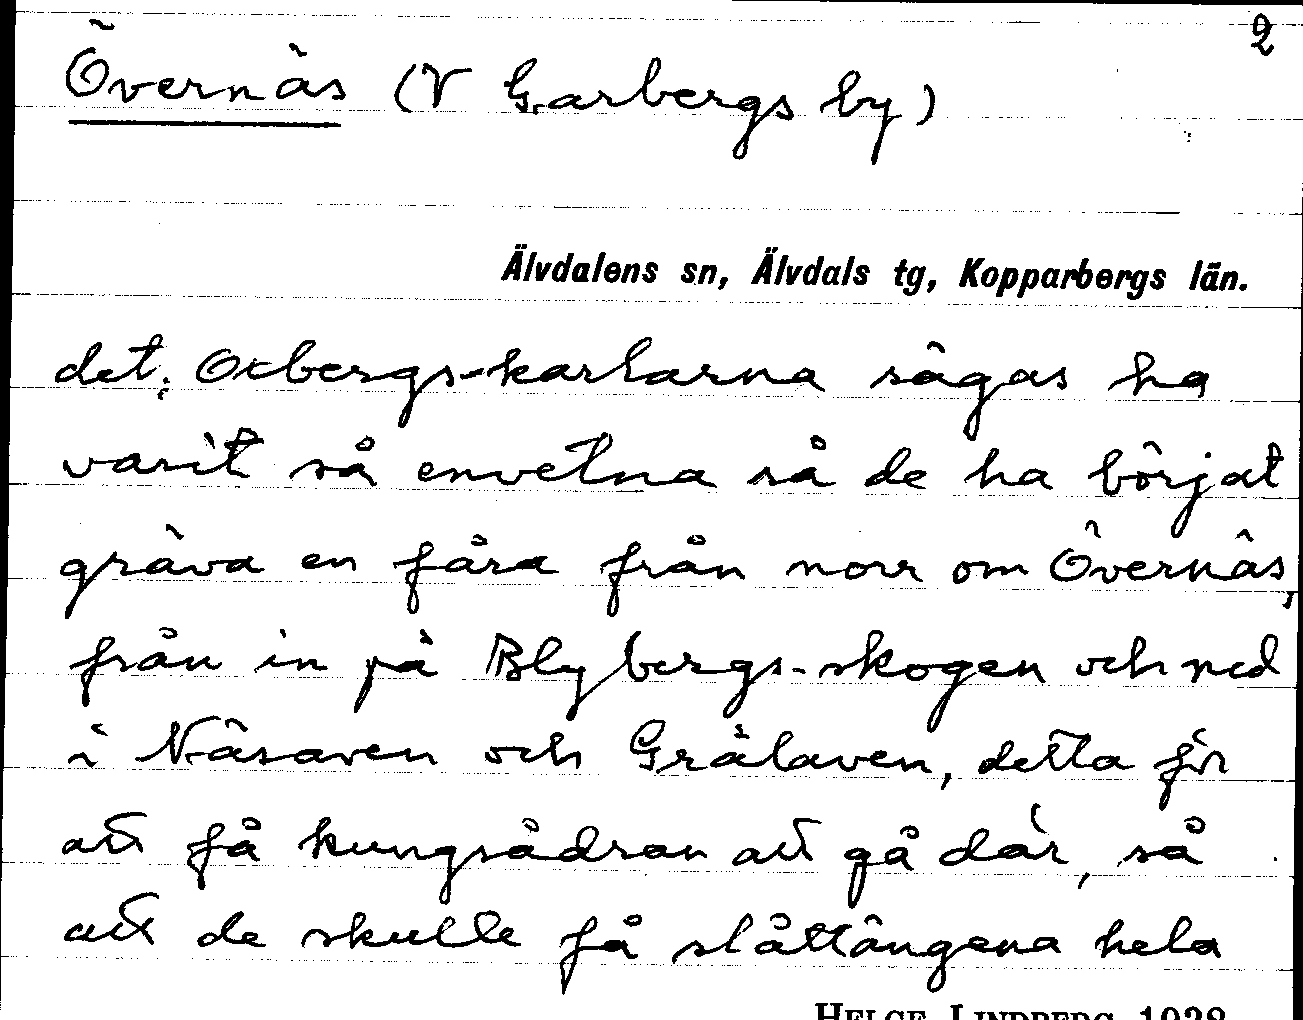 2
Övernäs (V Garbergs by)
Älvdalens sn, Älvdals tg, Kopparbergs län.
det. Oxbergs-karlarna sägas ha
varit så envetna så de ha börjat
gräva en fåra från norr om Övernäs,
från in på Blybergs-skogen och ned
i Näsaven och Grälaven, detta för
att få kungsådran att gå där, så
att de skulle få slåttängena hela
HELGE LINDBERG 1938